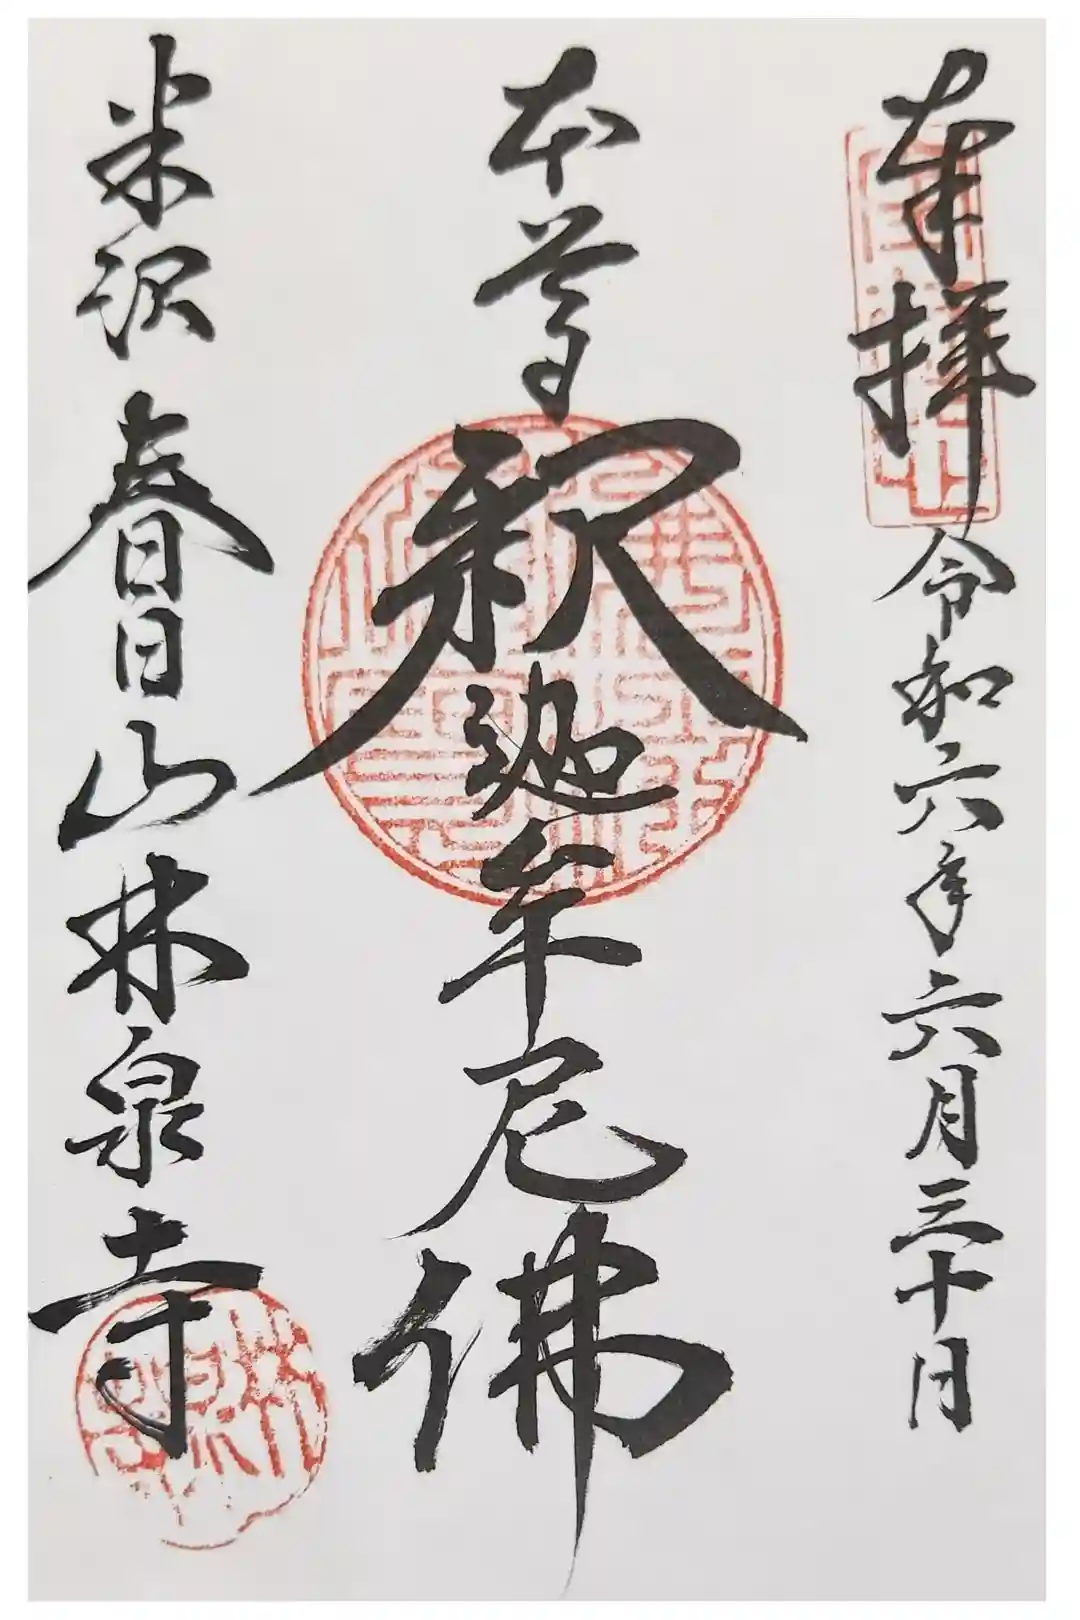 奉拝 令和六年六月三十日
本尊 釈迦牟尼佛
米沢 春日山林泉寺